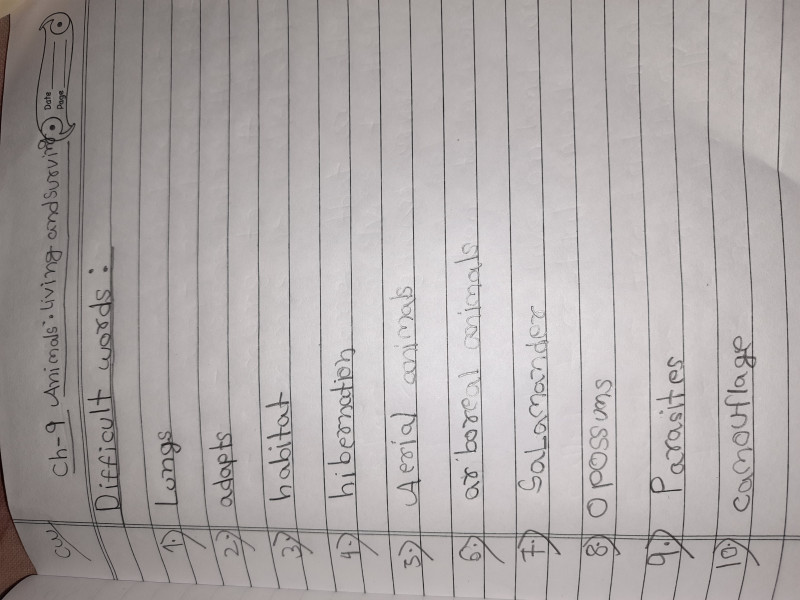 CW
Date
Page
Ch-9 Animals: living and surving
Difficult words:
1.) Lungs
2.) adapts
3.) habitat
4.) hibernation
5.) Aerial animals
6.) arboreal animals
7.) Salamander
8.) Opossums
9.) Parasites
10.) camouflage